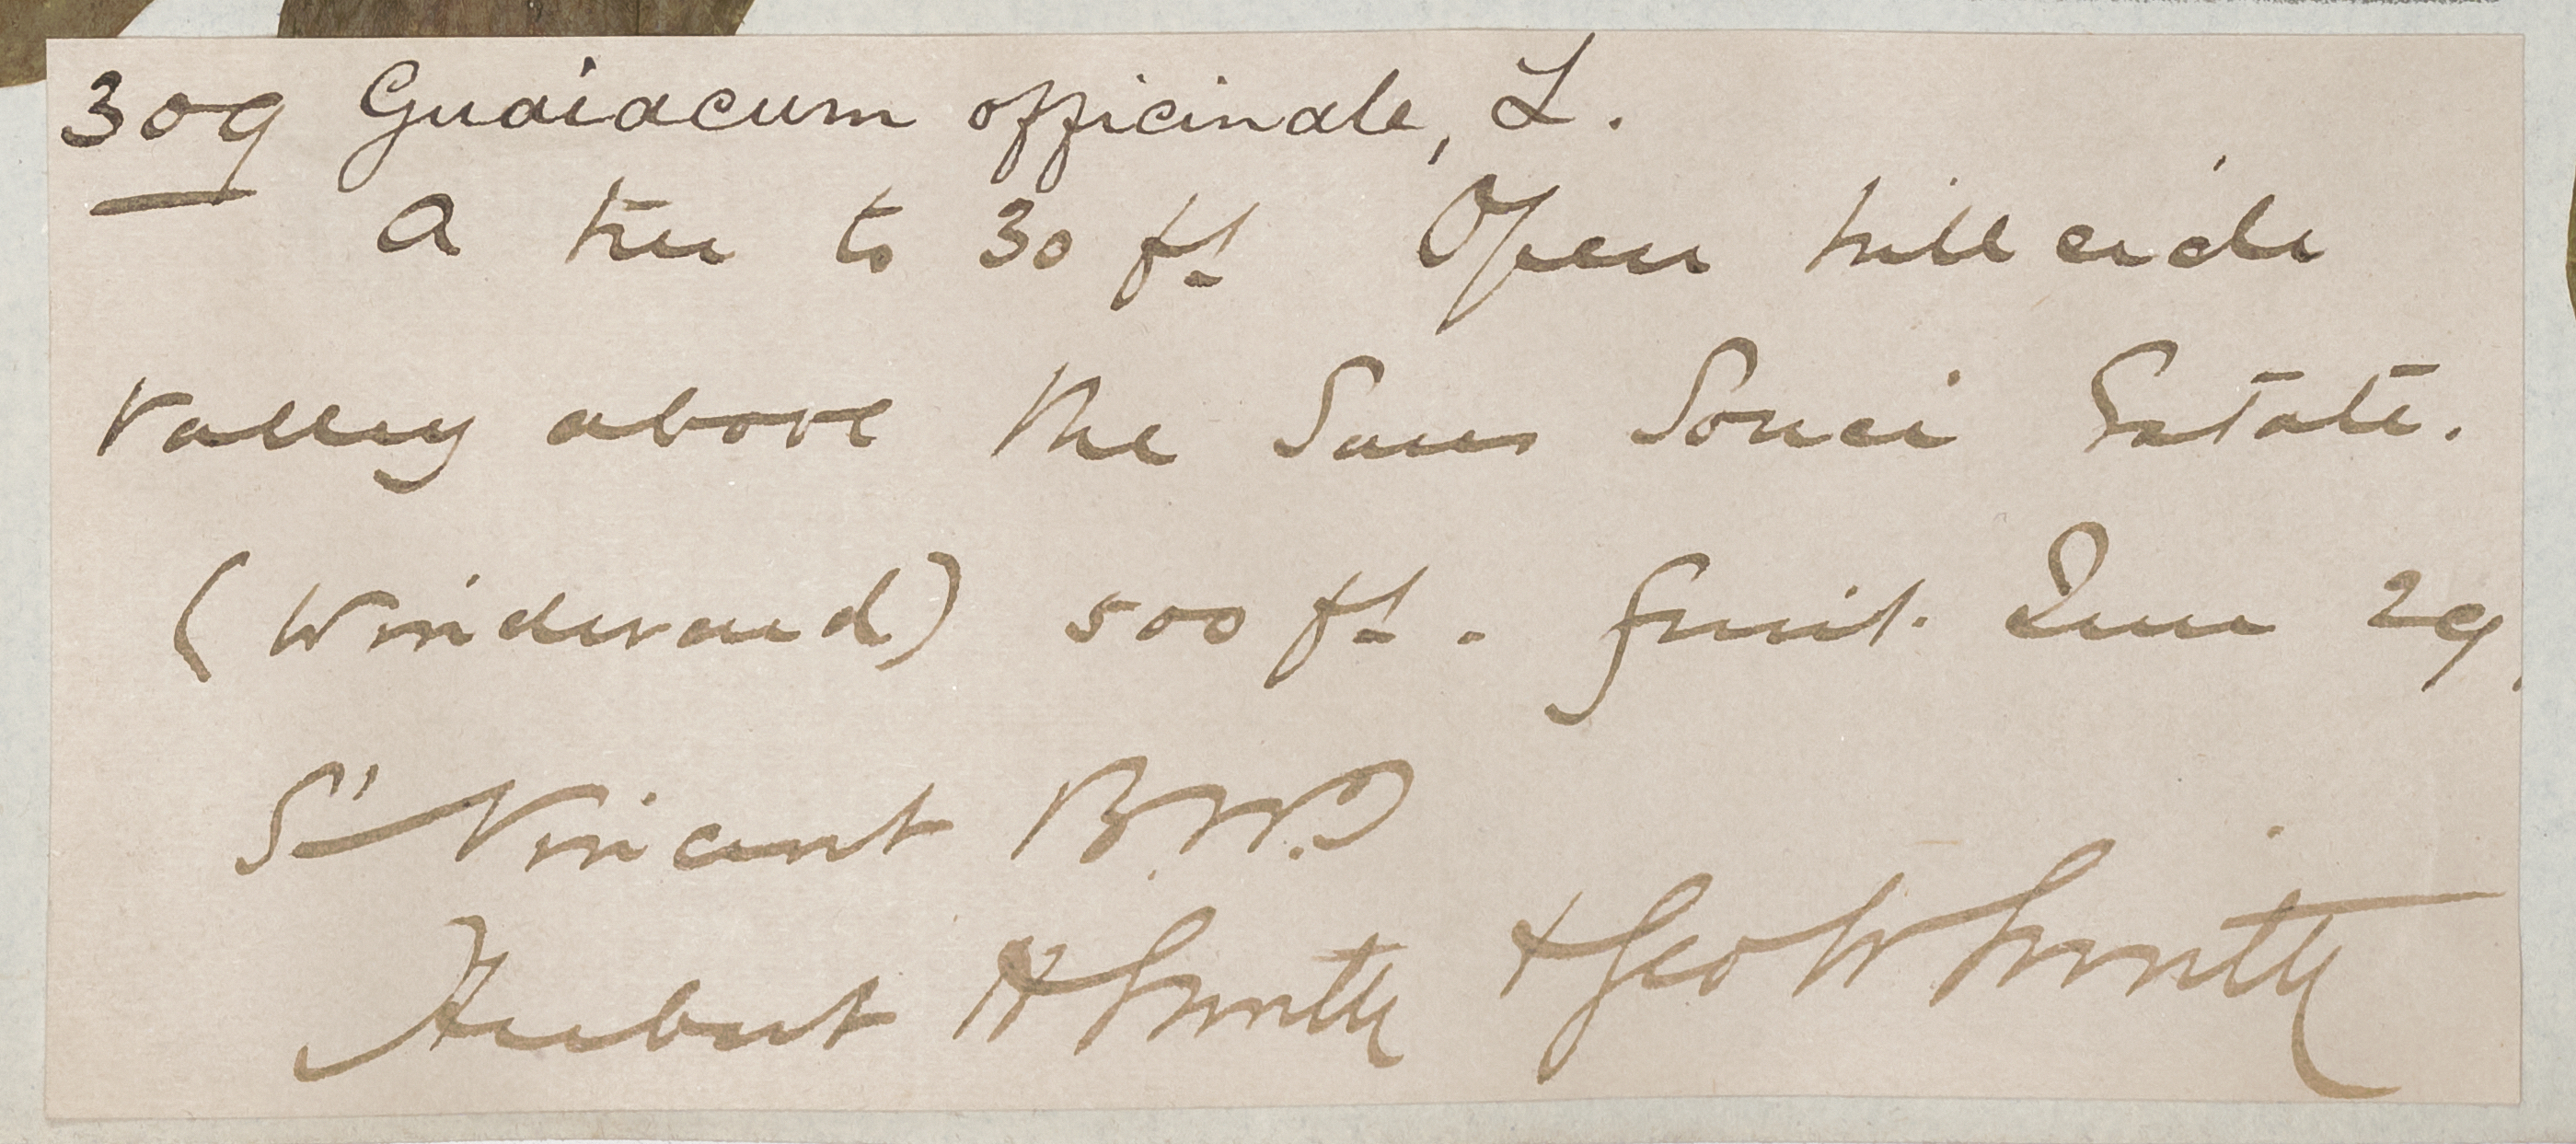 309 Guaiacum officinale, L.
A tree to 30 ft Open hillside
valley above the Sans Souci Estate.
(Windward) 500 ft. fruit. June 29,
St Vincent B.W.I
Herbert H Smith & Geo W Smith